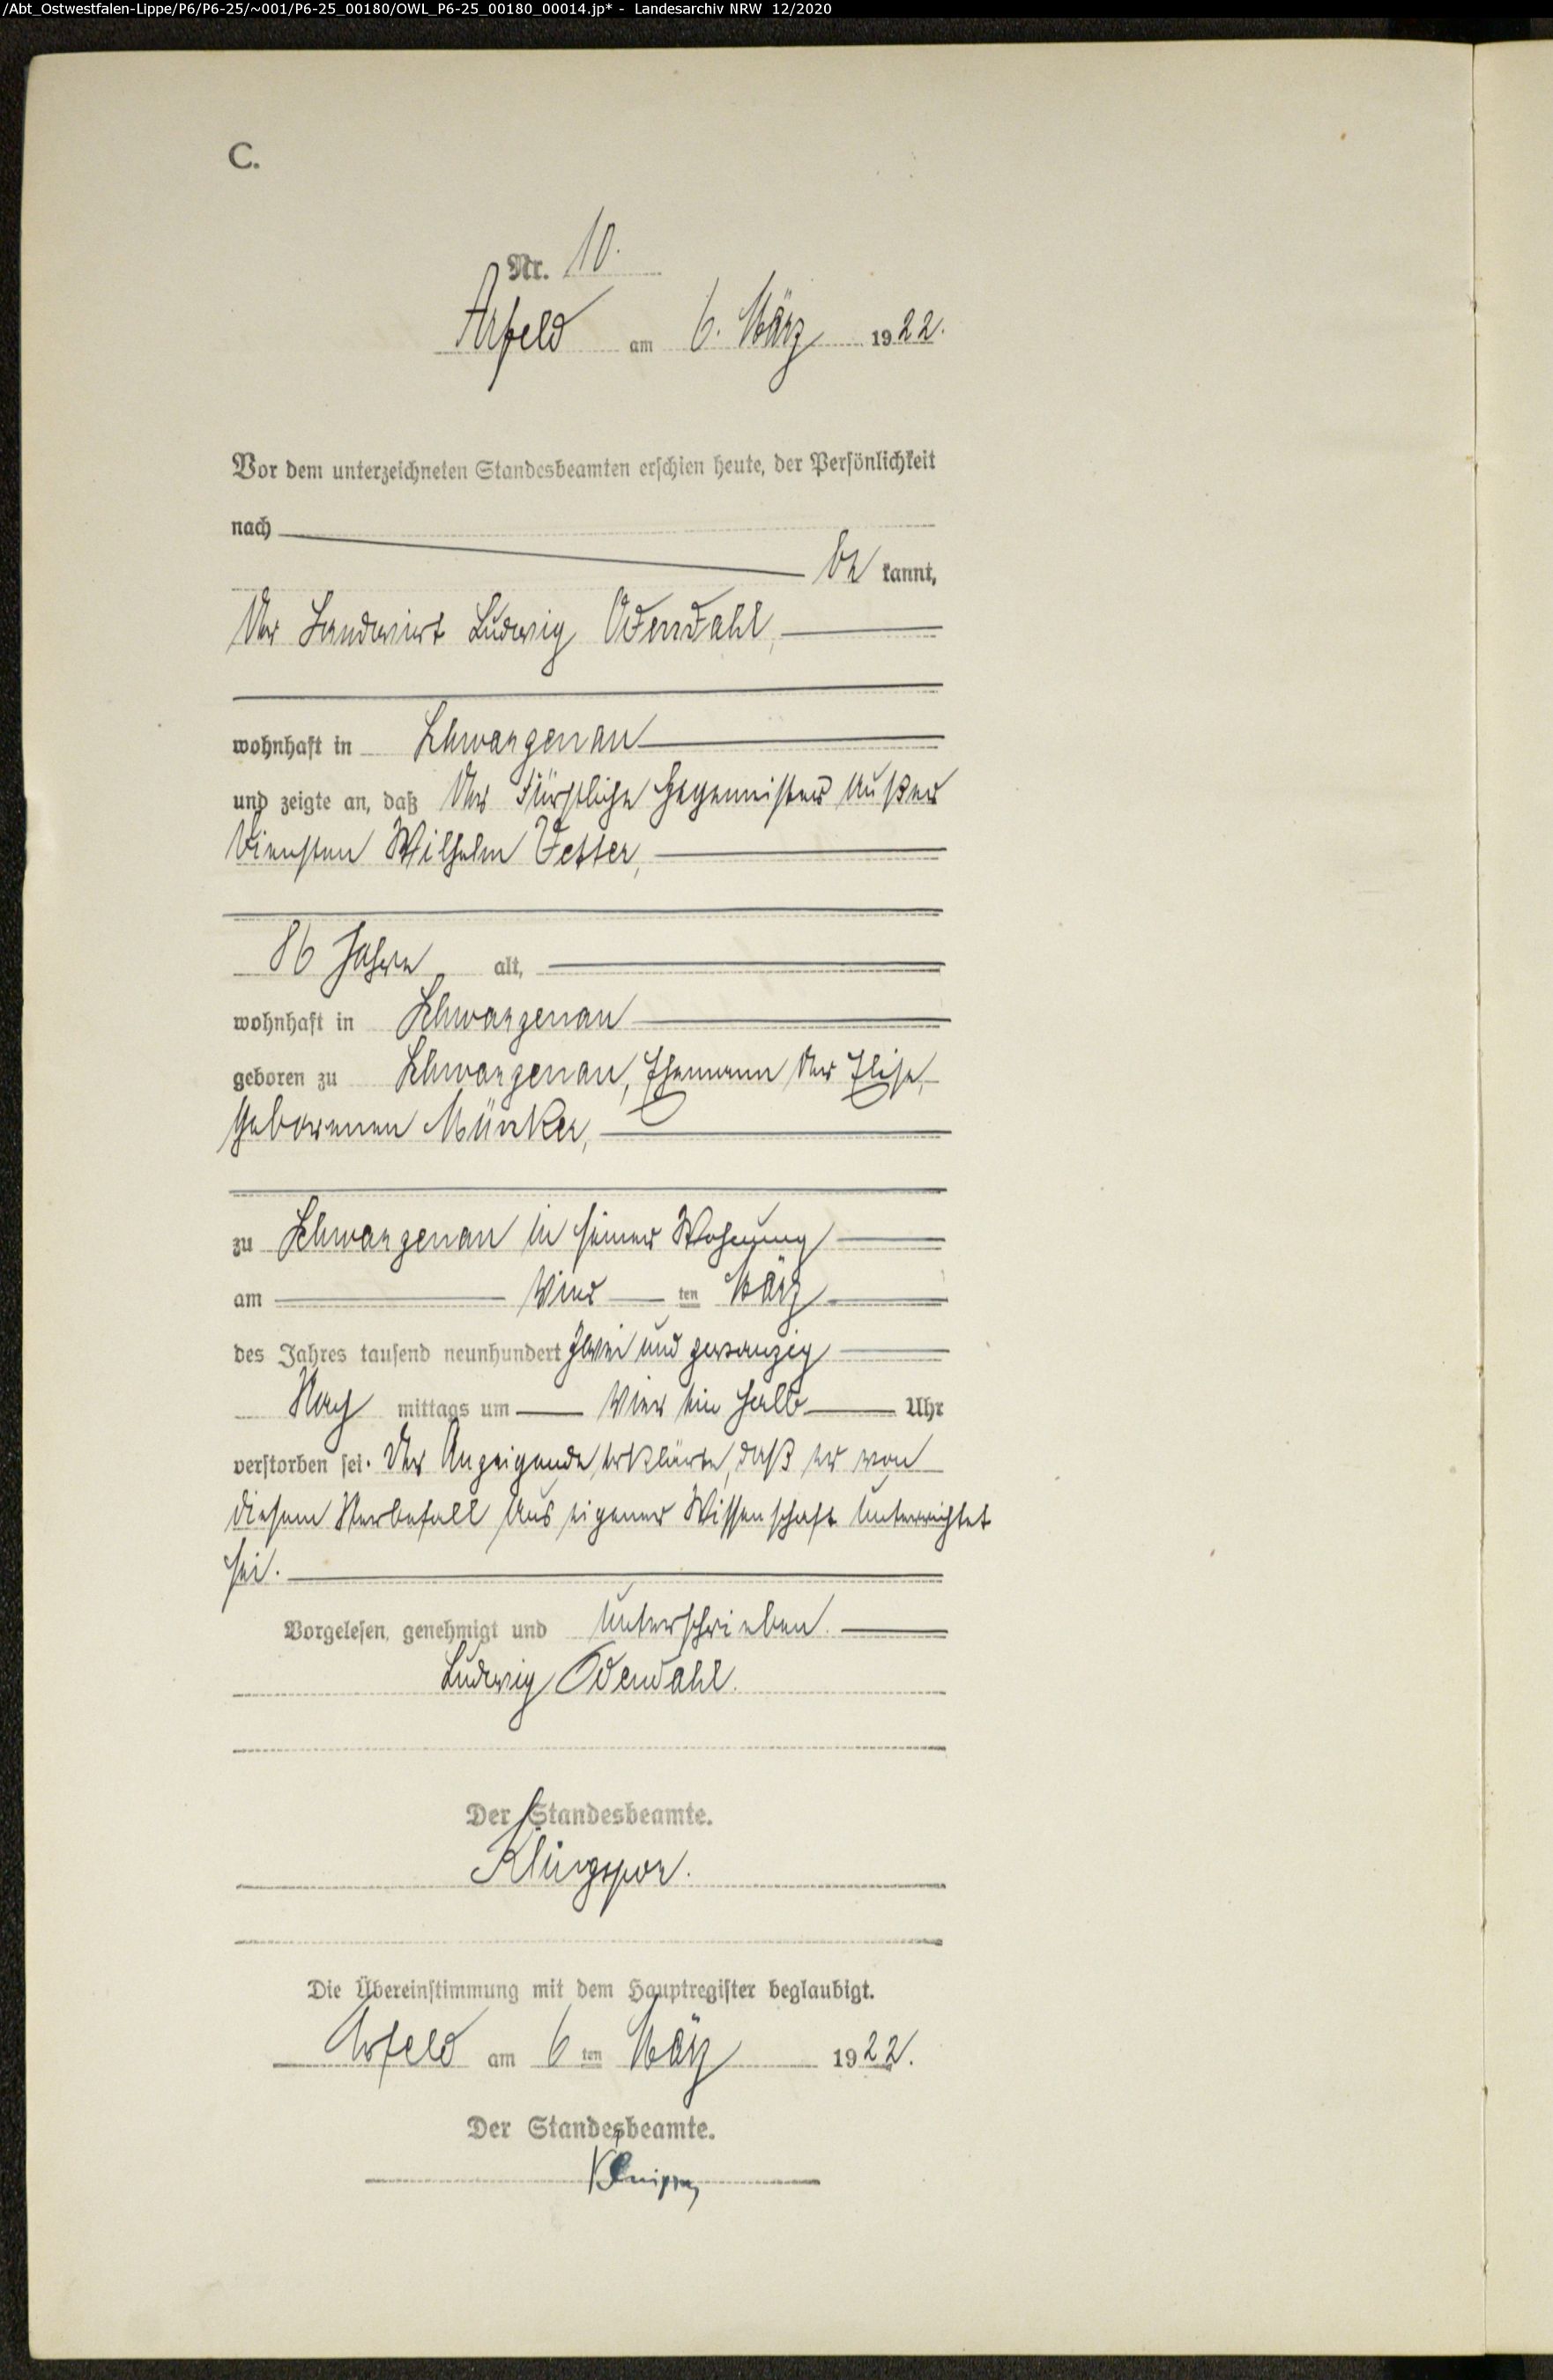 /Abt_Ostwestfalen-Lippe/P6/P6-25/~001/P6-25_00180/OWL_P6-25_00180_00014.jp* - Landesarchiv NRW 12/2020
C.
Nr. 10.
Arfeld am 6. März 1922.
Vor dem unterzeichneten Standesbeamten erschien heute, der Persönlichkeit
nach
be kannt,
Der Landwirt Ludwig Odendahl,
wohnhaft in Schwarzenau
und zeigte an, daß der Fürstliche Hegemeister außer
Diensten Wilhelm Vetter,
86 Jahre alt,
wohnhaft in Schwarzenau
geboren zu Schwarzenau, Ehemann der Elise,
geborenen Münker,
zu Schwarzenau in seiner Wohnung
am vier ten März
des Jahres tausend neunhundert zwei und zwanzig
Nach mittags um vier ein halb Uhr
verstorben sei. Der Anzeigende erklärte, daß er von
diesem Sterbefall aus eigener Wissenschaft unterrichtet
sei.
Vorgelesen, genehmigt und unterschrieben.
Ludwig Odendahl.
Der Standesbeamte.
Klingspor.
Die Übereinstimmung mit dem Hauptregister beglaubigt.
Arfeld am 6 ten März 1922.
Der Standesbeamte.